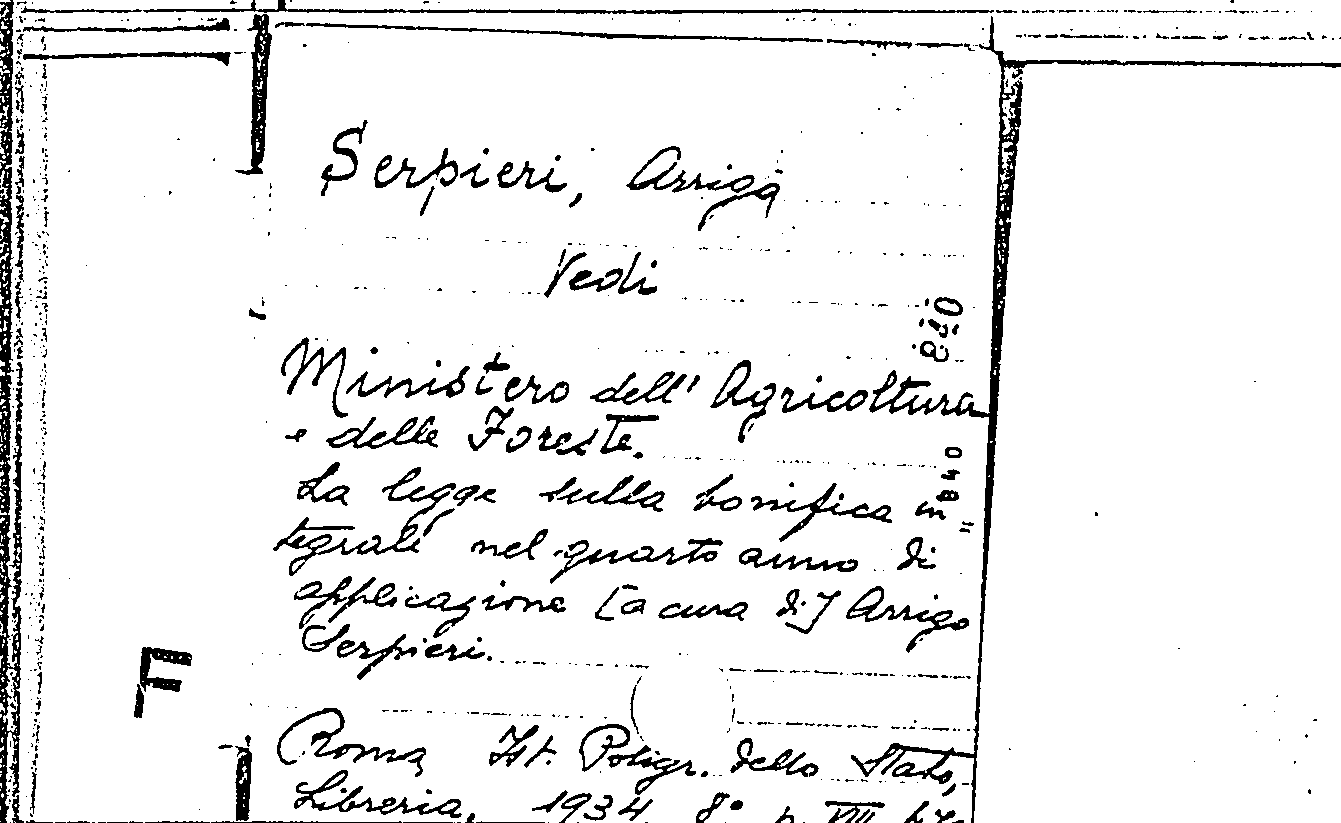 Serpieri, Arrigo
Vedi
Ministero dell'Agricoltura
e delle Foreste.
La legge sulla bonifica in
tegrale nel quarto anno di
applicazione [a cura di] Arrigo
Serpieri.
Roma, Ist. Poligr. dello Stato,
Libreria, 1934 8° p. VIII
840
840
F